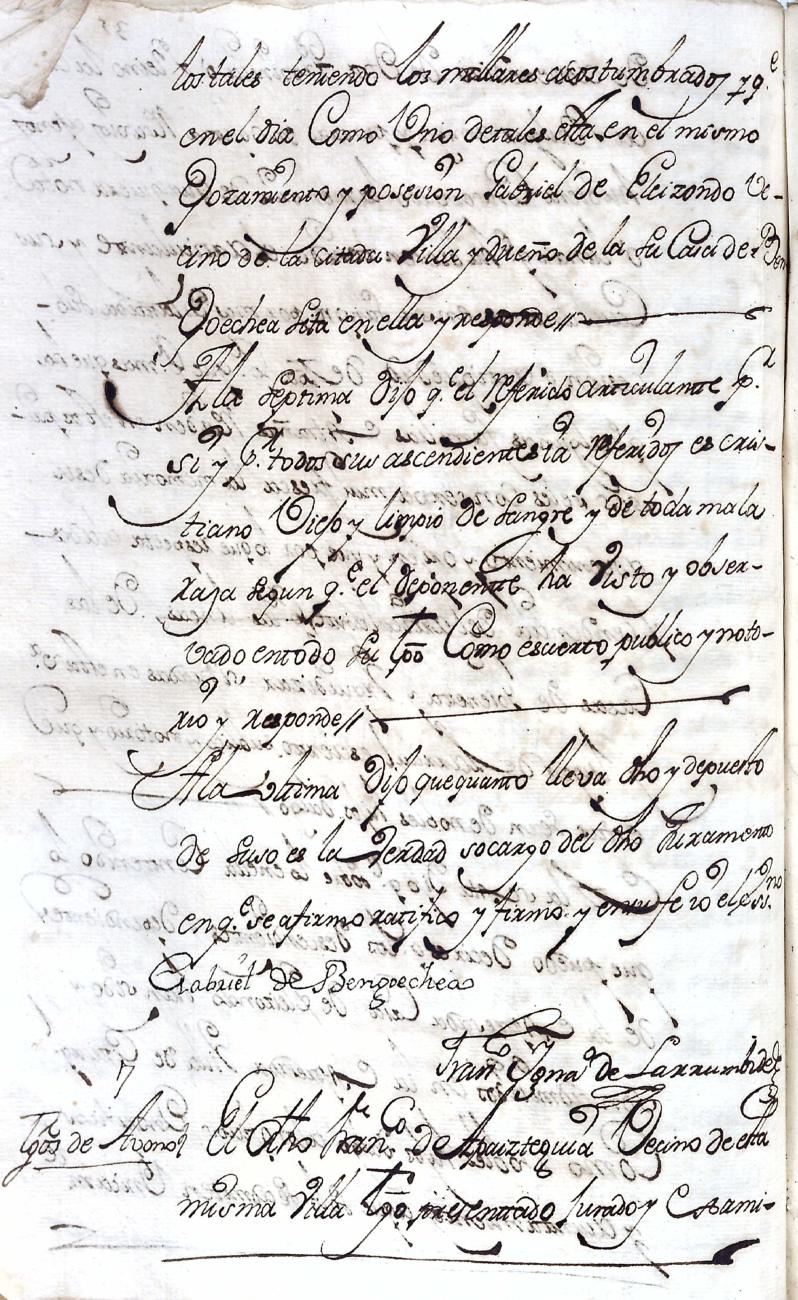 los tales teniendo los millares acostumbrados y q.e
en el dia Como Uno de tales esta en el mismo
Gozamiento y posesion Gabriel de Eleizondo Ve-
cino de la citada Villa y dueño de la su Casa de Ben
Goechea sita en ella y responde//
A la septima Dijo q.e el referido articulante p.r
si y p.r todos sus ascendientes ia referidos es cris-
tiano Viejo y limpio de sangre y de toda mala
raza segun q.e el deponente ha Visto y obser-
vado en todo su tpo Como es cierto publico y noto-
rio y responde//
A la ultima Dijo que quanto lleva dho y depuesto
de suso es la Verdad so cargo del dho Juramento
en q.e se afirmo ratifico y firmo y en su fe io el ess.no
Gabriel de Bengoechea
Fran.co Igna.o de Larrumbide
7
Tgos de Avono El Dho Fran.co de Apaizteguia Vecino de esta
misma Villa tgo presentado Jurado y Exami-